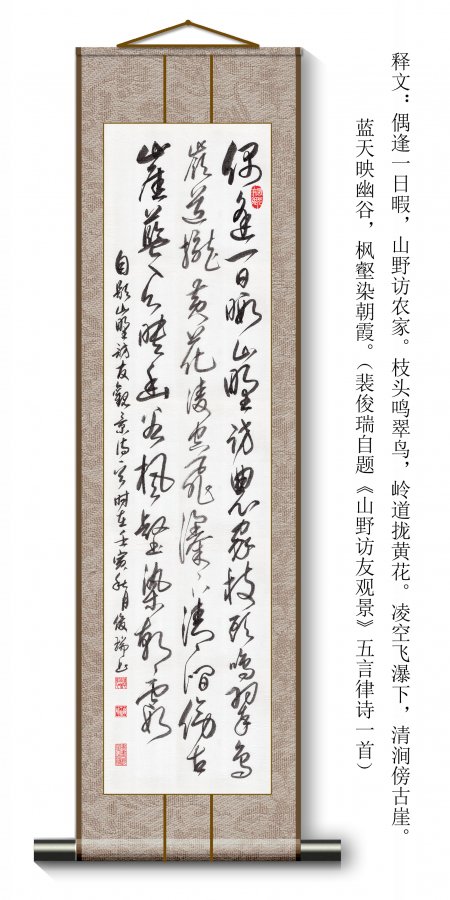 释文：偶逢一日暇，山野访农家。枝头鸣翠鸟，岭道拢黄花。凌空飞瀑下，清涧傍古崖。
蓝天映幽谷，枫壑染朝霞。（裴俊瑞自题《山野访友观景》五言律诗一首）
偶逢一日暇山野访農家枝头鳴翠鸟
岭道攏黄花凌空飛瀑下清澗傍古
崖蓝天映幽谷枫壑染朝霞
自题山野访友觀景诗一首时在壬寅秋月俊瑞书